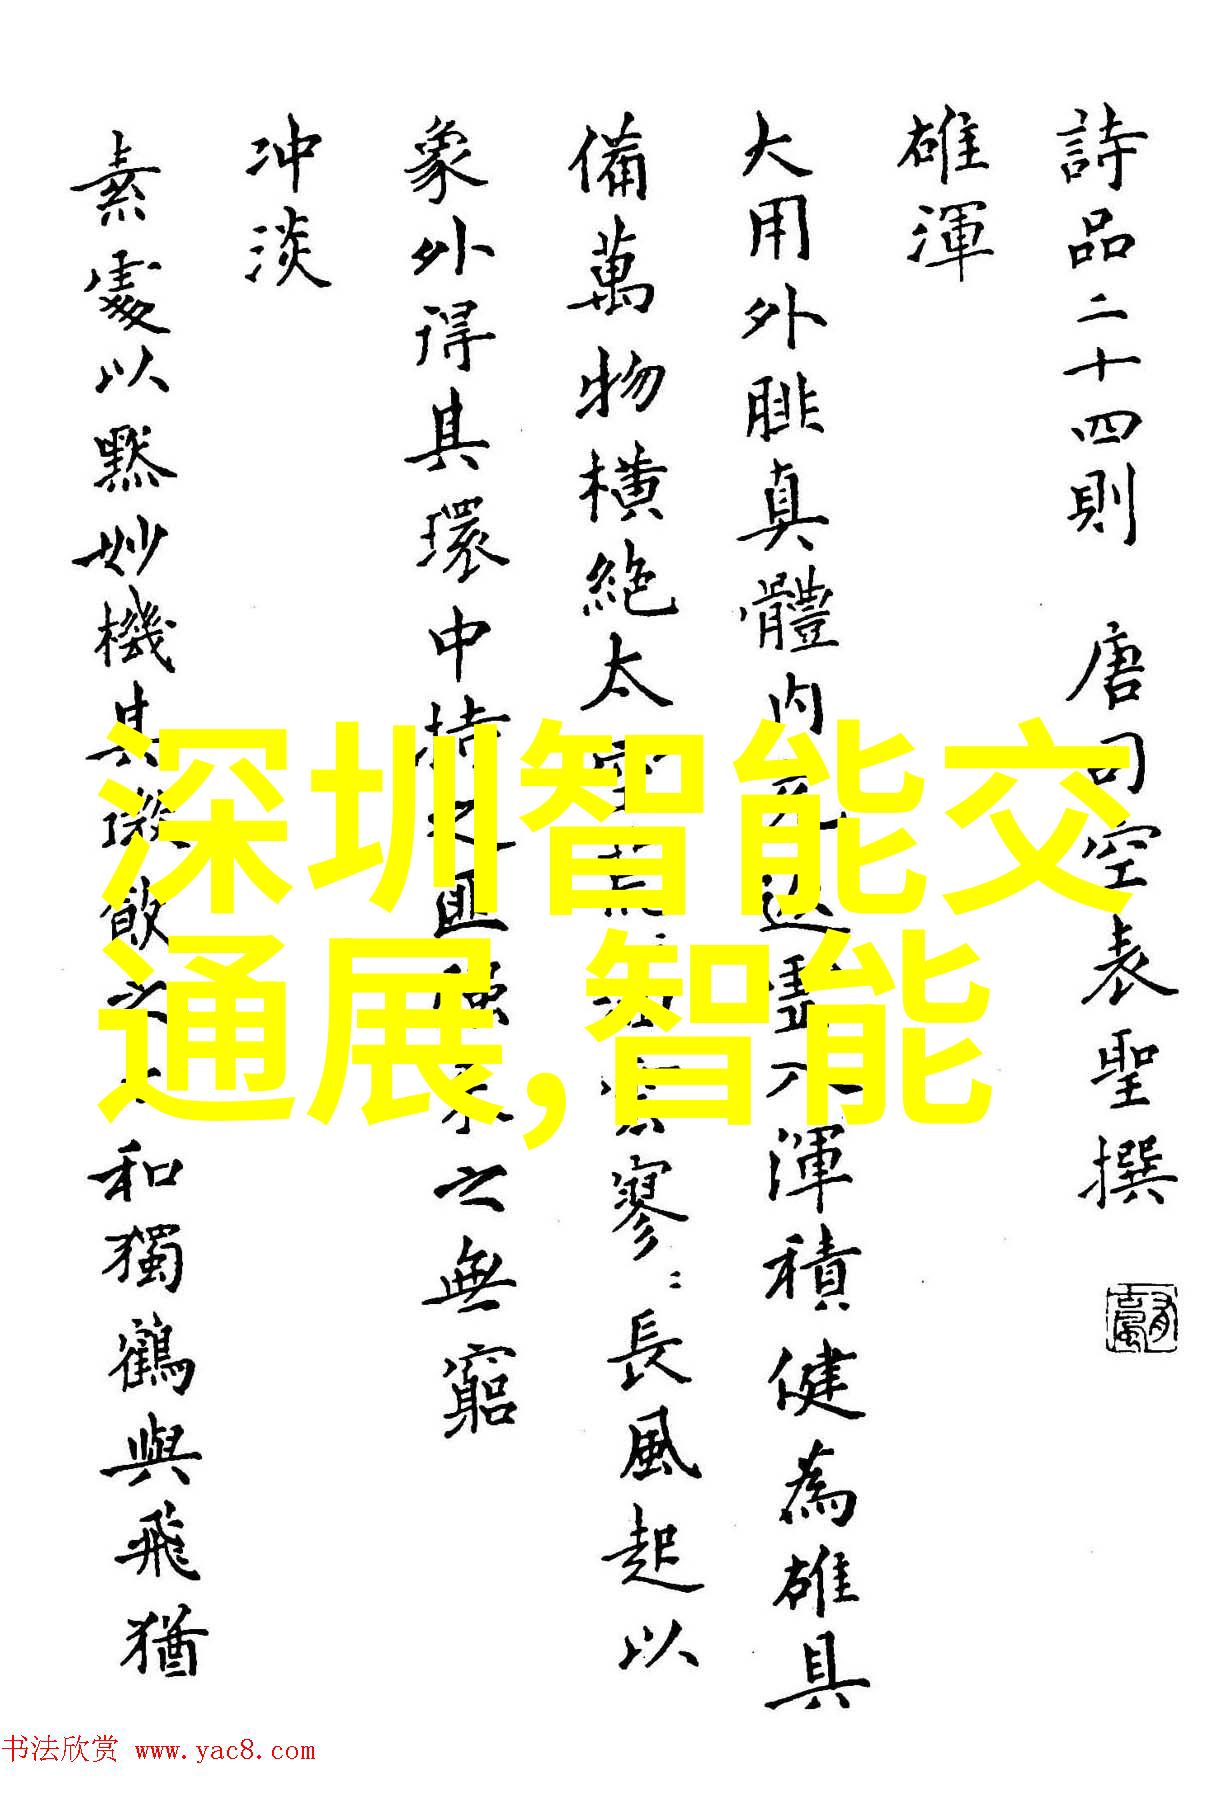 詩品二十四則 唐司空表聖撰
雄渾
大用外腓真體内返虛入渾積健為雄具
備萬物横絶太空寥〻長風起以
象外得其環中持之匪強来之無窮
冲淡
素處以黙妙機其微飲之和獨鶴與飛猶
深圳智能交
通展,智能
书法欣赏 www.yac8.com